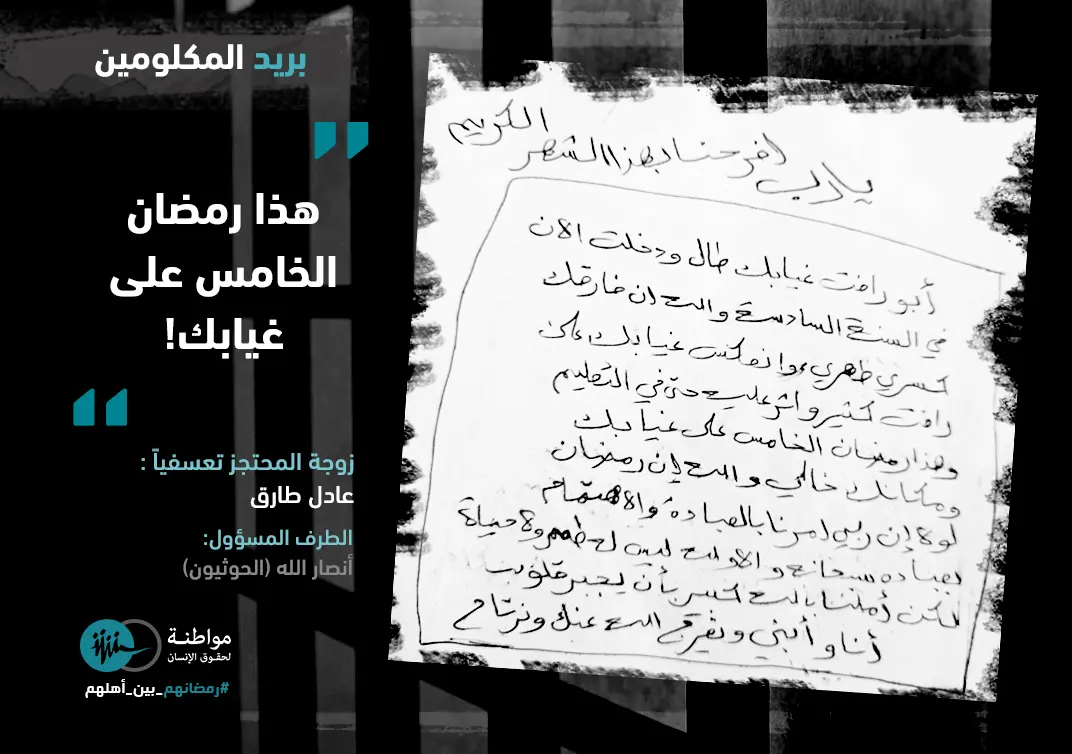 بريد المكلومين
"
هذا رمضان
الخامس على
غيابك!
"
زوجة المحتجز تعسفياً :
عادل طارق
الطرف المسؤول:
أنصار الله (الحوثيون)
مواطنة
لحقوق الإنسان
#رمضانهم_بين_أهلهم
يارب افرحنا بهذا الشهر الكريم
أبو رافت غيابك طال ودخلت الان
في السنة السادسة والله ان فارقك
كسري ظهري وانعكس غيابك على
رافت كثير واثر عليه حتى في التعليم
وهذا رمضان الخامس على غيابك
ومكانك خالي والله إن رمضان
لولا إن ربي امرنا بالعبادة والاهتمام
بعباده سبحانه والا والله ليس له طعم ولا حياة
لكن أملنا بالله كسر بأن يجبر قلوب
أنا وأبني ويفرج الله عنك ونرتاح